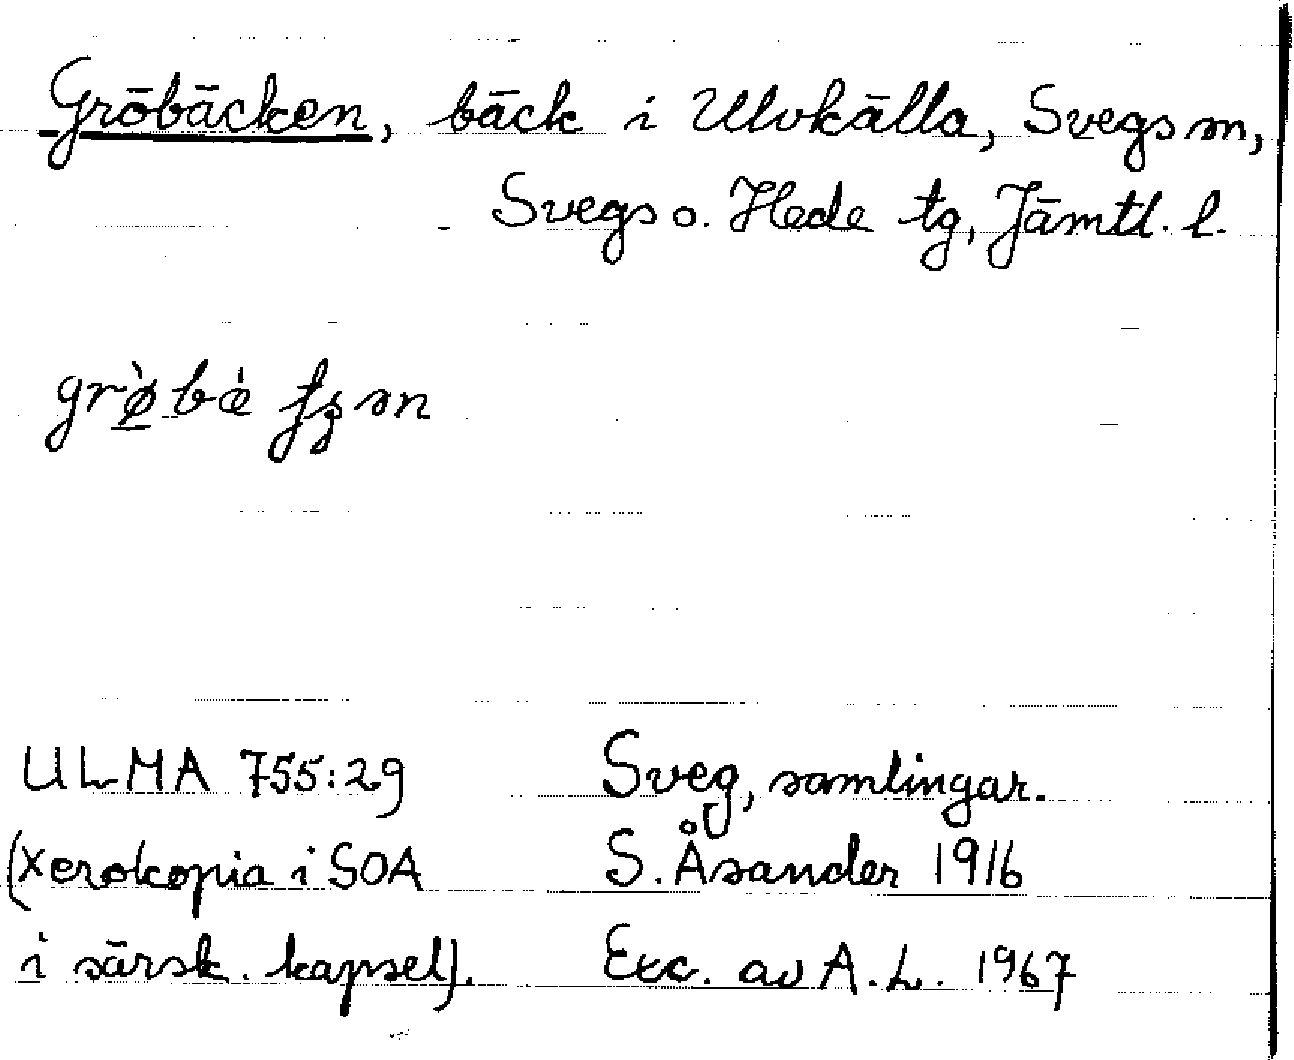 Gröbäcken, bäck i Ulvkälla, Svegs sn,
Svegs o. Hede tg, Jämtl. l.
ULMA 755:29 Sveg, samlingar.
(Xerokopia i SOA S. Åsander 1916
i särsk. kapsel). Exc. av A.L. 1967